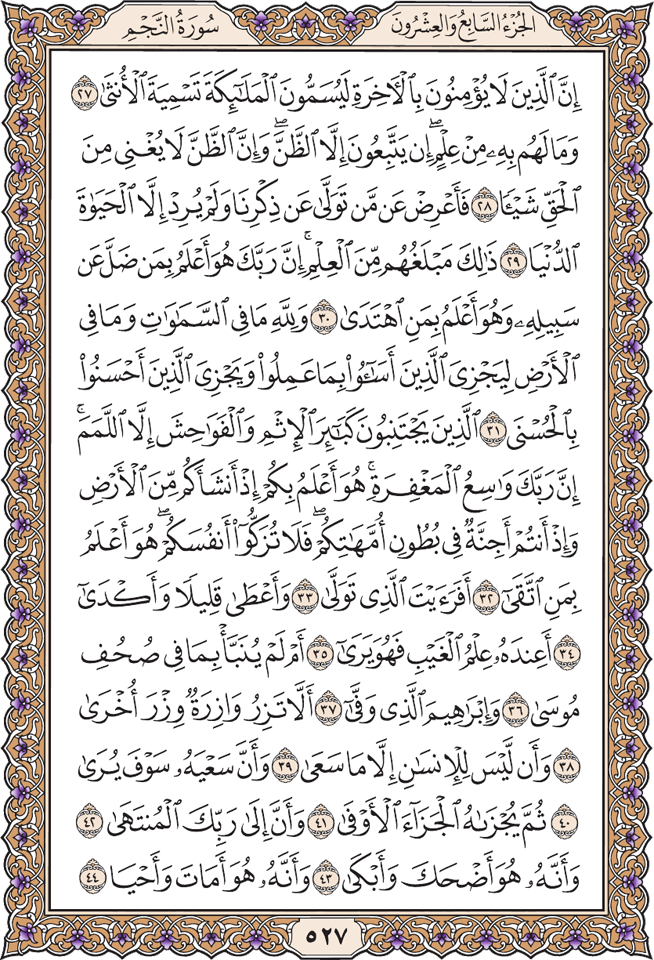 الجُزْءُ السَّابِعُ وَالعِشْرُونَ
سُورَةُ النَّجْمِ
إِنَّ ٱلَّذِينَ لَا يُؤْمِنُونَ بِٱلْأَخِرَةِ لَيُسَمُّونَ ٱلْمَلَـٰٓئِكَةَ تَسْمِيَةَ ٱلْأُنثَىٰ ٢٧
وَمَا لَهُم بِهِۦ مِنْ عِلْمٍۖ إِن يَتَّبِعُونَ إِلَّا ٱلظَّنَّۖ وَإِنَّ ٱلظَّنَّ لَا يُغْنِى مِنَ
ٱلْحَقِّ شَيْـًٔا ٢٨ فَأَعْرِضْ عَن مَّن تَوَلَّىٰ عَن ذِكْرِنَا وَلَمْ يُرِدْ إِلَّا ٱلْحَيَوٰةَ
ٱلدُّنْيَا ٢٩ ذَٰلِكَ مَبْلَغُهُم مِّنَ ٱلْعِلْمِۚ إِنَّ رَبَّكَ هُوَ أَعْلَمُ بِمَن ضَلَّ عَن
سَبِيلِهِۦ وَهُوَ أَعْلَمُ بِمَنِ ٱهْتَدَىٰ ٣٠ وَلِلَّهِ مَا فِى ٱلسَّمَـٰوَٰتِ وَمَا فِى
ٱلْأَرْضِ لِيَجْزِىَ ٱلَّذِينَ أَسَـٰٓـُٔوا۟ بِمَا عَمِلُوا۟ وَيَجْزِىَ ٱلَّذِينَ أَحْسَنُوا۟
بِٱلْحُسْنَى ٣١ ٱلَّذِينَ يَجْتَنِبُونَ كَبَـٰٓئِرَ ٱلْإِثْمِ وَٱلْفَوَٰحِشَ إِلَّا ٱللَّمَمَۚ
إِنَّ رَبَّكَ وَٰسِعُ ٱلْمَغْفِرَةِۚ هُوَ أَعْلَمُ بِكُمْ إِذْ أَنشَأَكُم مِّنَ ٱلْأَرْضِ
وَإِذْ أَنتُمْ أَجِنَّةٌ فِى بُطُونِ أُمَّهَـٰتِكُمْۖ فَلَا تُزَكُّوٓا۟ أَنفُسَكُمْۖ هُوَ أَعْلَمُ
بِمَنِ ٱتَّقَىٰٓ ٣٢ أَفَرَءَيْتَ ٱلَّذِى تَوَلَّىٰ ٣٣ وَأَعْطَىٰ قَلِيلًا وَأَكْدَىٰٓ
٣٤ أَعِندَهُۥ عِلْمُ ٱلْغَيْبِ فَهُوَ يَرَىٰٓ ٣٥ أَمْ لَمْ يُنَبَّأْ بِمَا فِى صُحُفِ
مُوسَىٰ ٣٦ وَإِبْرَٰهِيمَ ٱلَّذِى وَفَّىٰٓ ٣٧ أَلَّا تَزِرُ وَازِرَةٌ وِزْرَ أُخْرَىٰ
٣٨ وَأَن لَّيْسَ لِلْإِنسَـٰنِ إِلَّا مَا سَعَىٰ ٣٩ وَأَنَّ سَعْيَهُۥ سَوْفَ يُرَىٰ
٤٠ ثُمَّ يُجْزَىٰهُ ٱلْجَزَآءَ ٱلْأَوْفَىٰ ٤١ وَأَنَّ إِلَىٰ رَبِّكَ ٱلْمُنتَهَىٰ ٤٢
وَأَنَّهُۥ هُوَ أَضْحَكَ وَأَبْكَىٰ ٤٣ وَأَنَّهُۥ هُوَ أَمَاتَ وَأَحْيَا ٤٤
٥٢٧